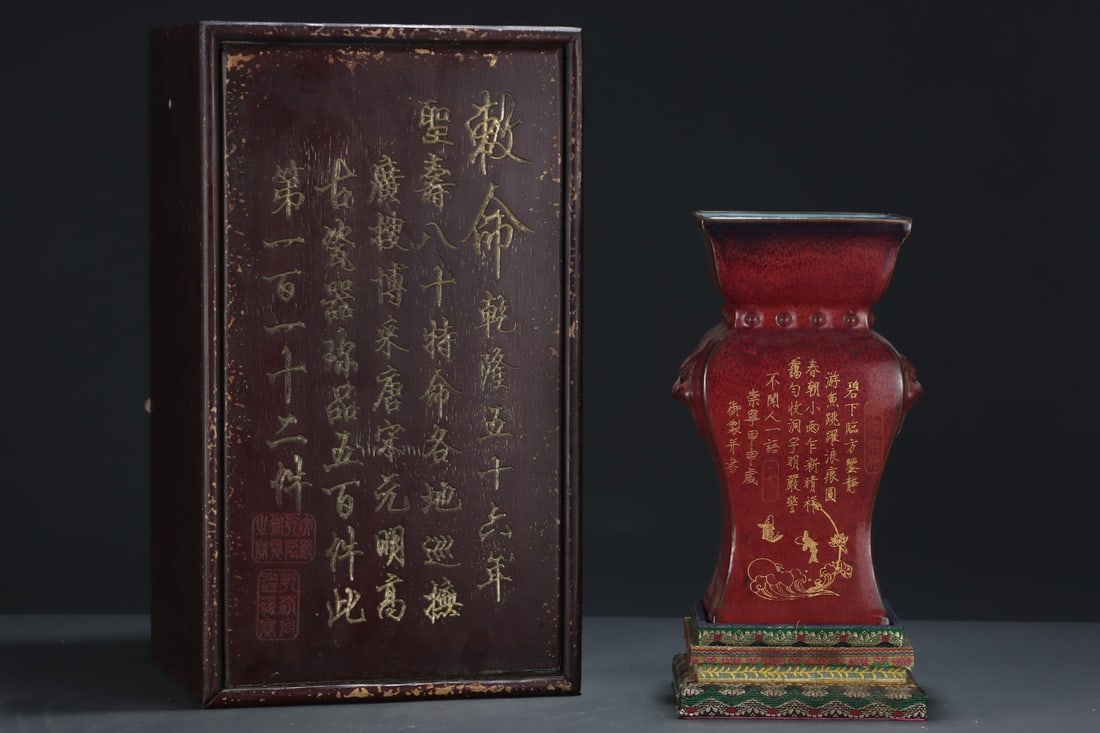 敕命乾隆五十六年
聖壽八十特命各地巡撫
廣搜博采唐宋元明高
古瓷器珎品五百件此
第一百一十二件
碧下臨方鑒靜
游魚跳躍浪痕圓
春朝小雨乍新晴
不聞人一語
崇寧甲申歲
御製并書